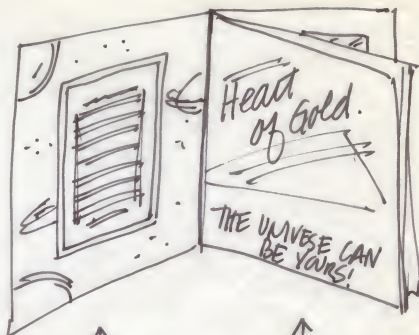 Heart
of Gold.
THE UNIVESE CAN
BE YOURS!